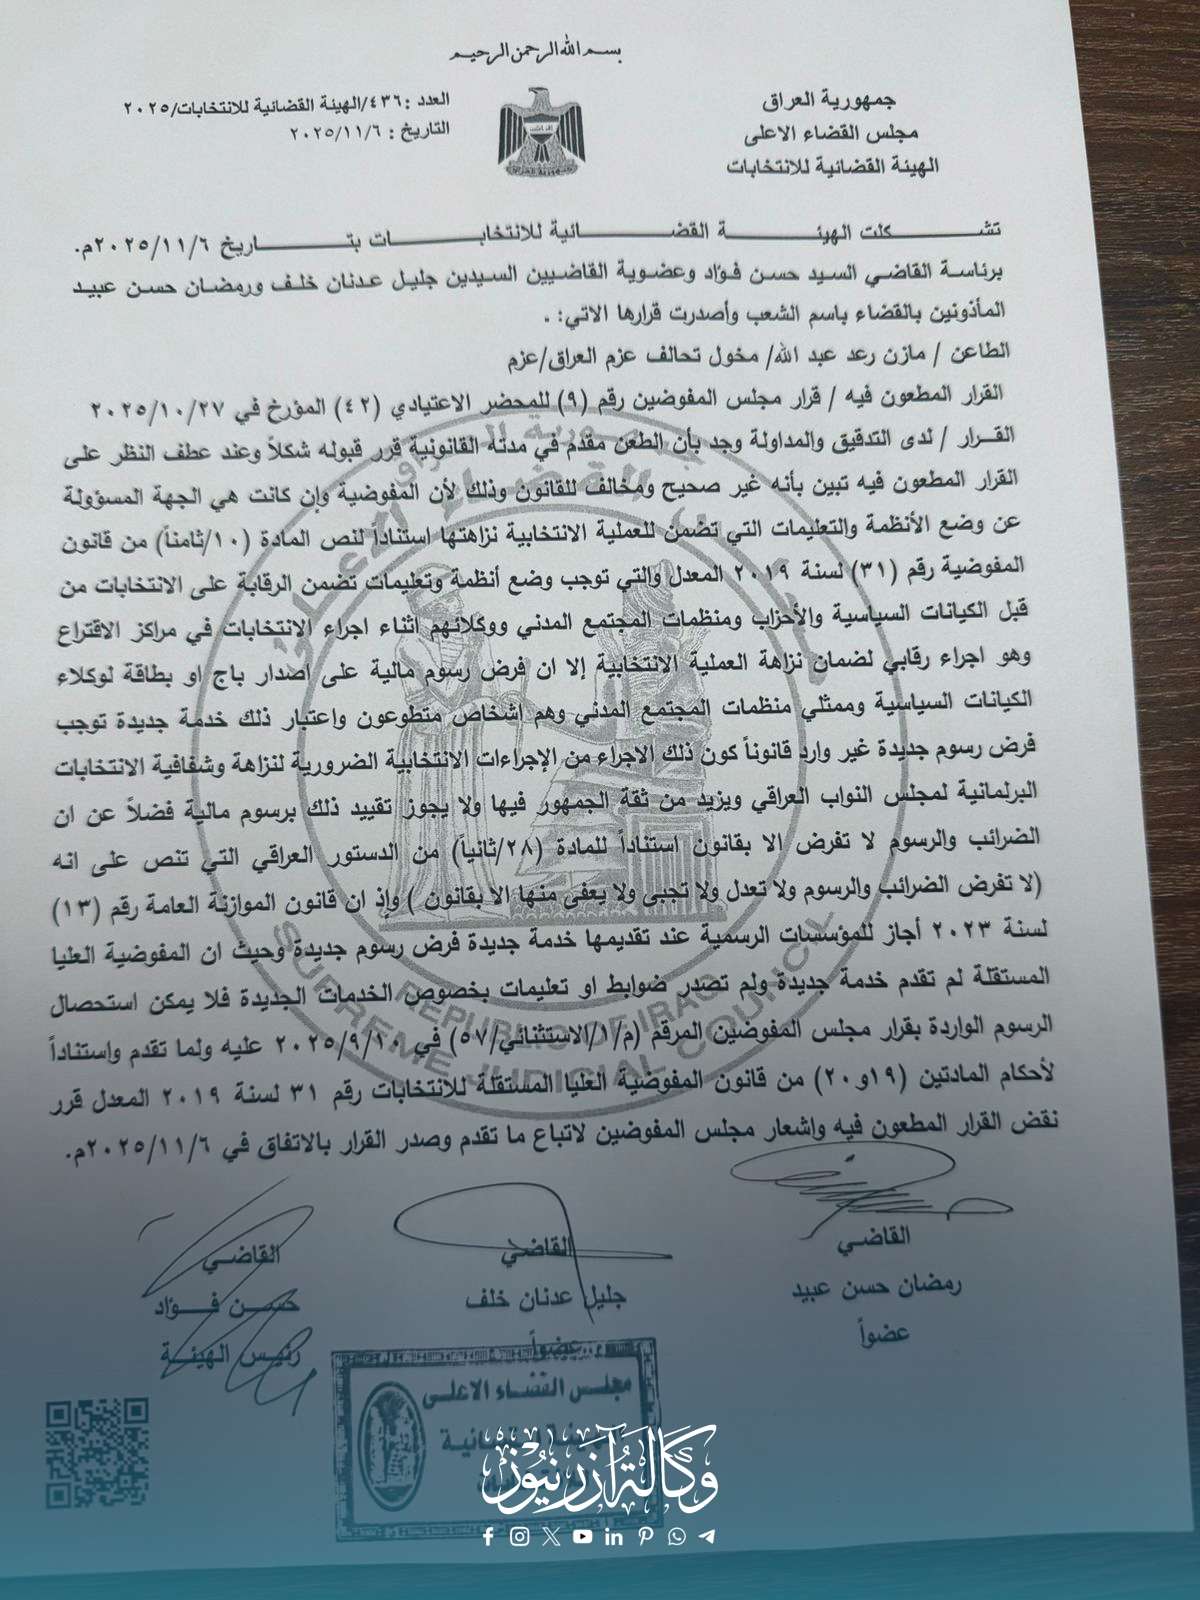 بسم الله الرحمن الرحيم
جمهورية العراق
مجلس القضاء الاعلى
الهيئة القضائية للانتخابات
العدد :٤٣٦/الهيئة القضائية للانتخابات/٢٠٢٥
التاريخ : ٢٠٢٥/١١/٦
تشكلت الهيئة القضائية للانتخابات بتاريخ ٢٠٢٥/١١/٦م.
برئاسة القاضي السيد حسن فؤاد وعضوية القاضيين السيدين جليل عدنان خلف ورمضان حسن عبيد
المأذونين بالقضاء باسم الشعب وأصدرت قرارها الاتي: .
الطاعن / مازن رعد عبد الله/ مخول تحالف عزم العراق/عزم
القرار المطعون فيه / قرار مجلس المفوضين رقم (٩) للمحضر الاعتيادي (٤٢) المؤرخ في ٢٠٢٥/١٠/٢٧
القرار / لدى التدقيق والمداولة وجد بأن الطعن مقدم في مدته القانونية قرر قبوله شكلاً وعند عطف النظر على
القرار المطعون فيه تبين بأنه غير صحيح ومخالف للقانون وذلك لأن المفوضية وإن كانت هي الجهة المسؤولة
عن وضع الأنظمة والتعليمات التي تضمن للعملية الانتخابية نزاهتها استناداً لنص المادة (١٠/ثامناً) من قانون
المفوضية رقم (٣١) لسنة ٢٠١٩ المعدل والتي توجب وضع أنظمة وتعليمات تضمن الرقابة على الانتخابات من
قبل الكيانات السياسية والأحزاب ومنظمات المجتمع المدني ووكلائهم اثناء اجراء الانتخابات في مراكز الاقتراع
وهو اجراء رقابي لضمان نزاهة العملية الانتخابية إلا ان فرض رسوم مالية على اصدار باج او بطاقة لوكلاء
الكيانات السياسية وممثلي منظمات المجتمع المدني وهم اشخاص متطوعون واعتبار ذلك خدمة جديدة توجب
فرض رسوم جديدة غير وارد قانوناً كون ذلك الاجراء من الإجراءات الانتخابية الضرورية لنزاهة وشفافية الانتخابات
البرلمانية لمجلس النواب العراقي ويزيد من ثقة الجمهور فيها ولا يجوز تقييد ذلك برسوم مالية فضلاً عن ان
الضرائب والرسوم لا تفرض الا بقانون استناداً للمادة (٢٨/ثانياً) من الدستور العراقي التي تنص على انه
(لا تفرض الضرائب والرسوم ولا تعدل ولا تجبى ولا يعفى منها الا بقانون ) وإذ ان قانون الموازنة العامة رقم (١٣)
لسنة ٢٠٢٣ أجاز للمؤسسات الرسمية عند تقديمها خدمة جديدة فرض رسوم جديدة وحيث ان المفوضية العليا
المستقلة لم تقدم خدمة جديدة ولم تصدر ضوابط او تعليمات بخصوص الخدمات الجديدة فلا يمكن استحصال
الرسوم الواردة بقرار مجلس المفوضين المرقم (م/١/الاستثنائي/٥٧) في ٢٠٢٥/٩/١٠ عليه ولما تقدم واستناداً
لأحكام المادتين (١٩و٢٠) من قانون المفوضية العليا المستقلة للانتخابات رقم ٣١ لسنة ٢٠١٩ المعدل قرر
نقض القرار المطعون فيه واشعار مجلس المفوضين لاتباع ما تقدم وصدر القرار بالاتفاق في ٢٠٢٥/١١/٦م.
REPUBLIC OF IRAQ
SUPREME JUDICIAL COUNCIL
القاضي
رمضان حسن عبيد
عضواً
القاضي
جليل عدنان خلف
عضواً
القاضي
حسن فؤاد
رئيس الهيئة
مجلس القضاء الاعلى
وكالة آزر نيوز